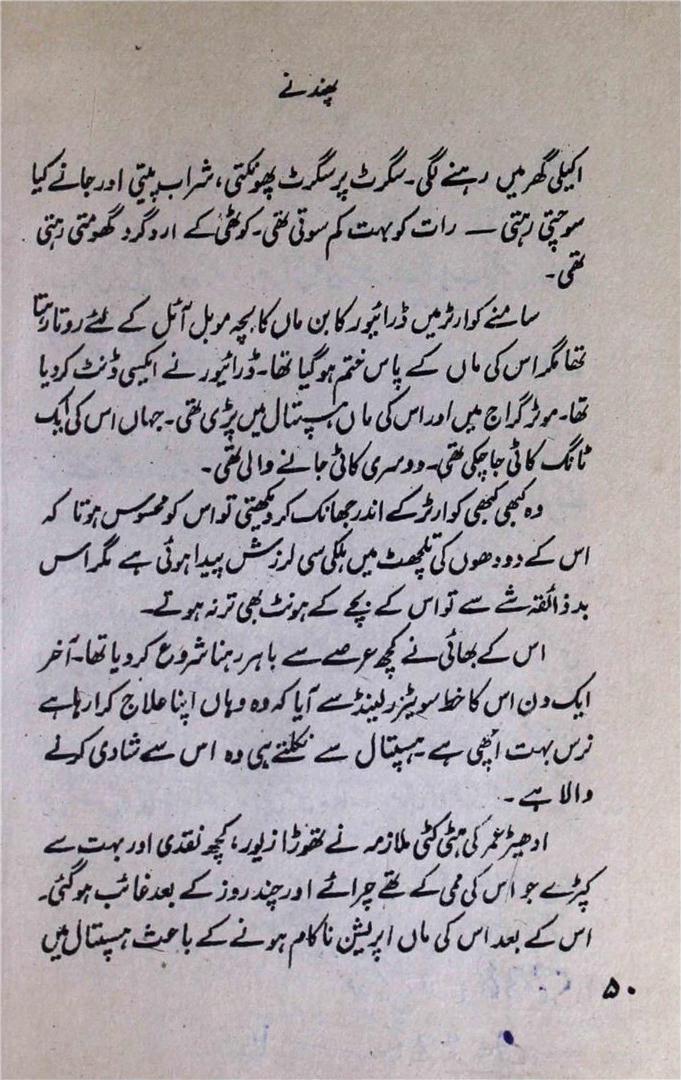 پھندنے
اکیلی گھر میں رہنے لگی۔ سگرٹ پر سگرٹ پھونکتی، شراب پیتی اور جانے کیا
سوچتی رہتی — رات کو بہت کم سوتی تھی۔ کوٹھی کے ارد گرد گھومتی رہتی
تھی۔
سامنے کوارٹر میں ڈرائیور کا بن ماں کا بچہ موبل آئل کے لئے روتا رہتا
تھا مگر اس کی ماں کے پاس ختم ہو گیا تھا۔ ڈرائیور نے ایکسی ڈنٹ کر دیا
تھا۔ موٹر گراج میں اور اس کی ماں ہسپتال میں پڑی تھی۔ جہاں اس کی ایک
ٹانگ کاٹی جا چکی تھی۔ دوسری کاٹی جانے والی تھی۔
وہ کبھی کبھی کوارٹر کے اندر جھانک کر دیکھتی تو اس کو محسوس ہوتا کہ
اس کے دودھوں کی تلچھٹ میں ہلکی سی لرزش پیدا ہوئی ہے مگر اس
بدذائقہ شے سے تو اس کے بچے کے ہونٹ بھی تر نہ ہوتے۔
اس کے بھائی نے کچھ عرصے سے باہر رہنا شروع کر دیا تھا۔ آخر
ایک دن اس کا خط سویٹزرلینڈ سے آیا کہ وہ وہاں اپنا علاج کرا رہا ہے
نرس بہت اچھی ہے ہسپتال سے نکلتے ہی وہ اس سے شادی کرنے
والا ہے۔
ادھیڑ عمر کی ہٹی کٹی ملازمہ نے تھوڑا زیور، کچھ نقدی اور بہت سے
کپڑے جو اس کی ممی کے تھے چرائے اور چند روز کے بعد غائب ہو گئی۔
اس کے بعد اس کی ماں اپریشن ناکام ہونے کے باعث ہسپتال میں
۵۰